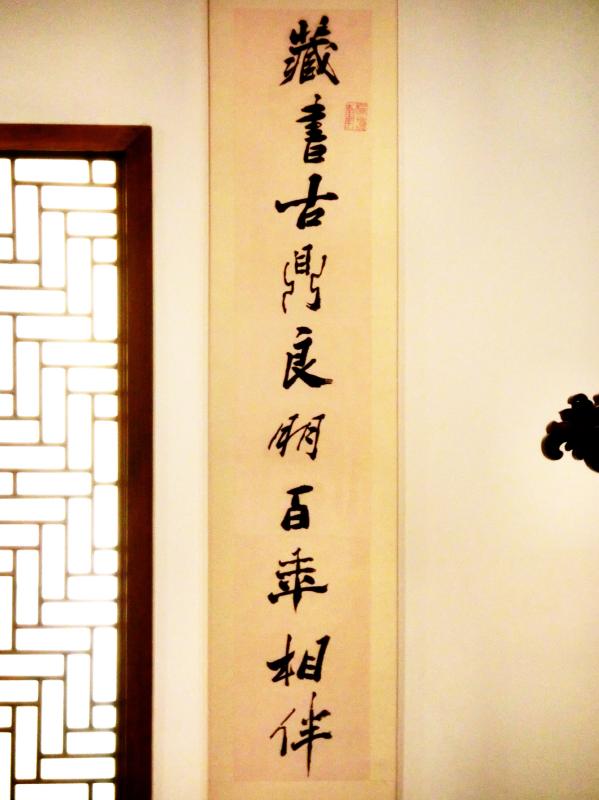 藏書古鼎良朋百年相伴